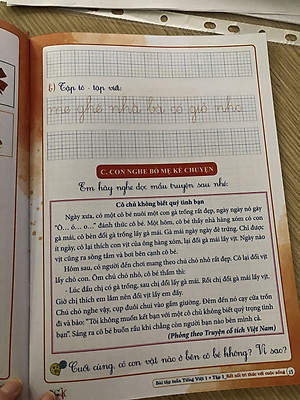 b) Tập tô - tập viết:
mẹ ghé nhà bà có giỏ nho
C. CON NGHE BỐ MẸ KỂ CHUYỆN
Em hãy nghe đọc mẩu truyện sau nhé:
Cô chủ không biết quý tình bạn
Ngày xưa, có một cô bé nuôi một con gà trống rất đẹp, ngày ngày nó gáy
"Ò… ó… o…" đánh thức cô bé. Một hôm, cô bé thấy nhà hàng xóm có con
gà mái, cô bèn đổi gà trống lấy gà mái. Gà mái ngày ngày đẻ trứng. Chỉ được
ít ngày, cô lại thích con vịt của ông hàng xóm, lại đổi gà mái lấy vịt. Ngày nào
vịt cũng ra sông tắm và bơi bên cạnh cô bé.
Hôm sau, có người đến chơi mang theo chú chó nhỏ rất đẹp. Cô lại đổi vịt
lấy chó con. Ôm chú chó nhỏ, cô bé thầm thì:
- Lúc đầu chị có gà trống, sau chị đổi lấy gà mái. Rồi chị đổi gà mái lấy vịt.
Giờ chị thích em lắm nên đổi vịt lấy em đấy.
Chú chó nghe vậy, cụp đuôi chui vào gầm giường. Đêm đến nó cạy cửa trốn
đi và bảo: "Tôi không muốn kết bạn với một cô chủ không biết quý trọng tình
bạn". Sáng ra cô bé buồn rầu khi chẳng còn người bạn nào bên mình cả.
(Phỏng theo Truyện cổ tích Việt Nam)
Cuối cùng, có con vật nào ở bên cô bé không? Vì sao?
Bài tập tuần Tiếng Việt 1 - Tập 1_Kết nối tri thức với cuộc sống 15